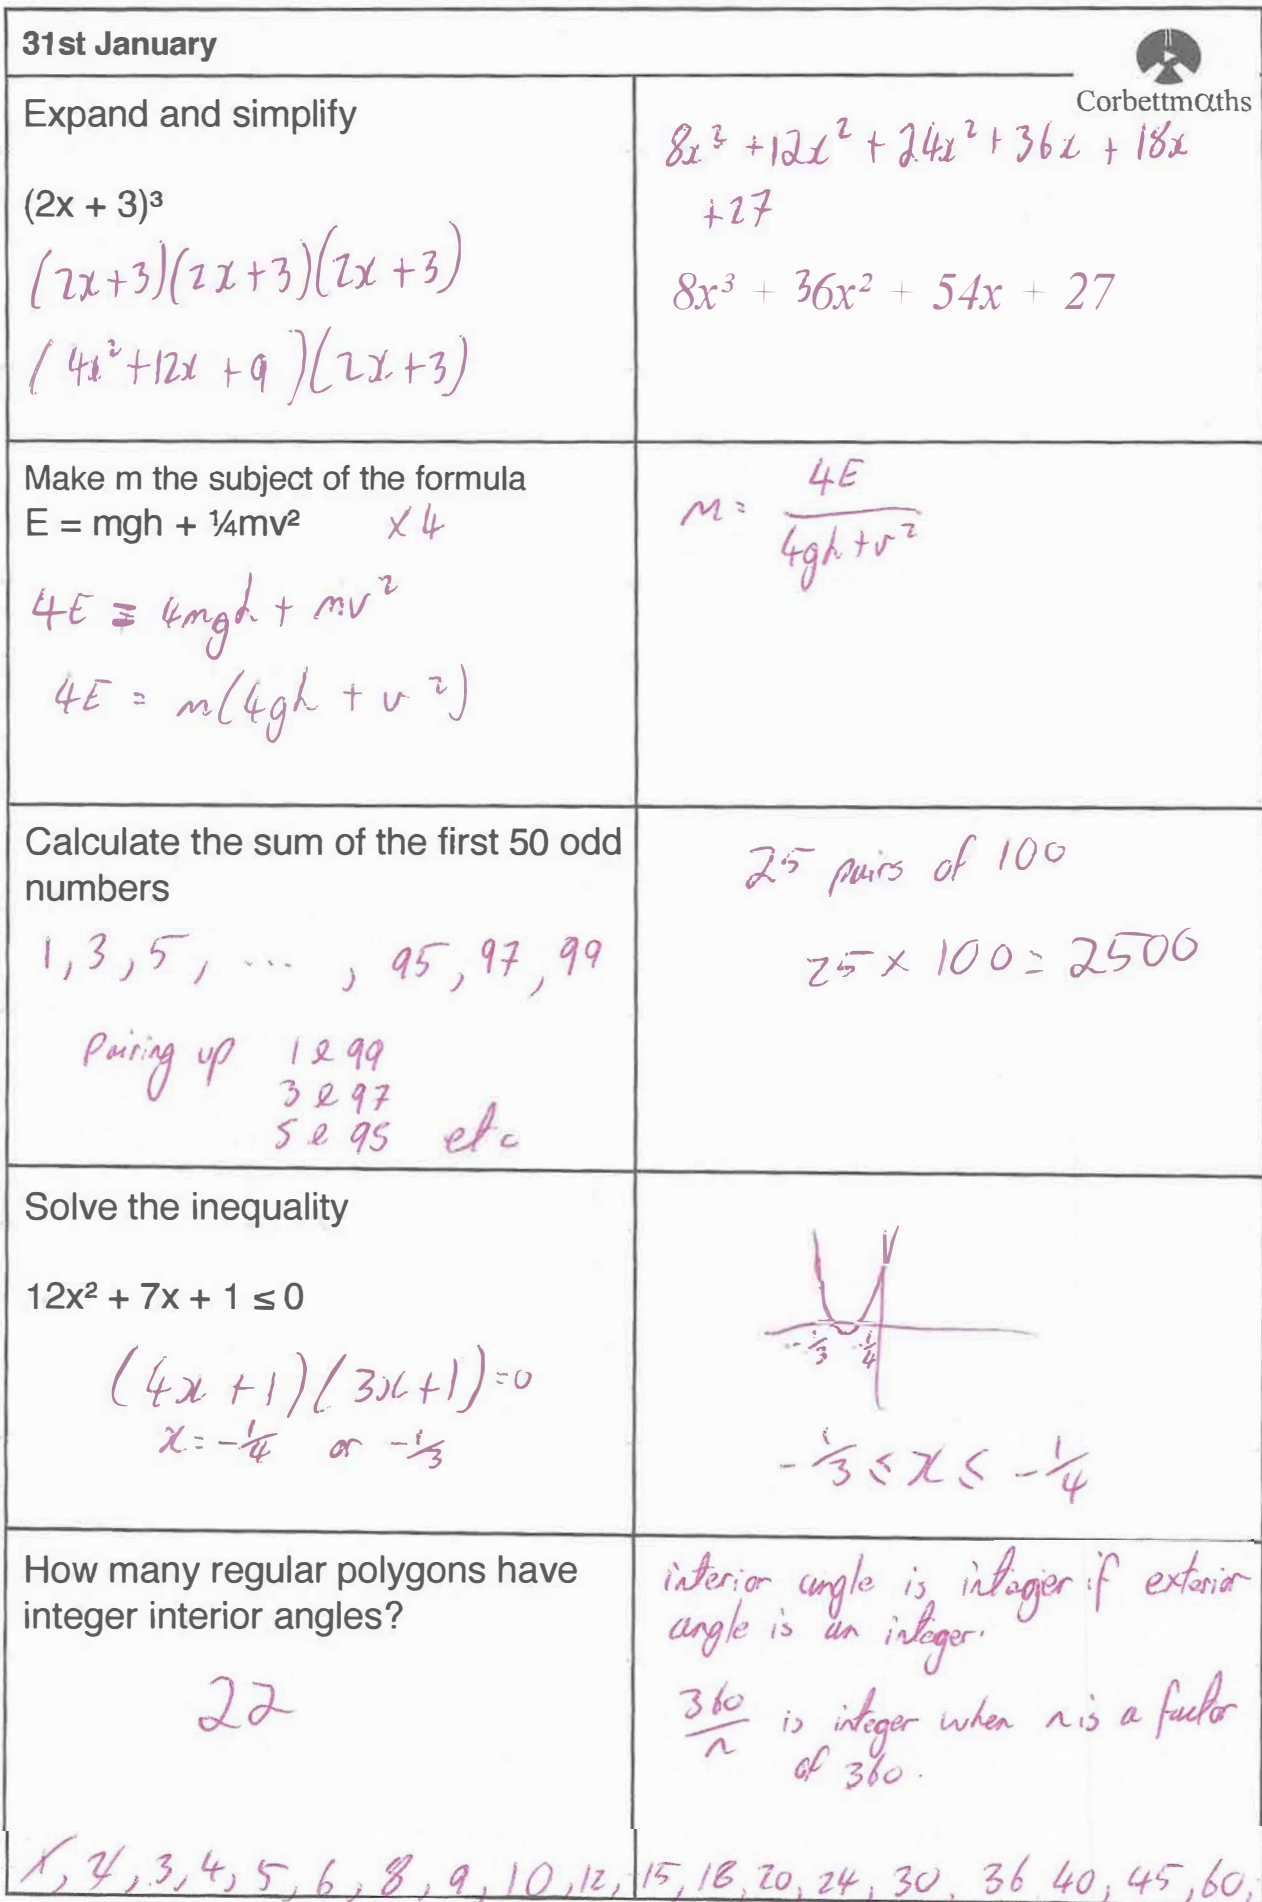 31st January
Corbettmαths
Expand and simplify
(2x + 3)³
(2x+3)(2x+3)(2x+3)
(4x²+12x+9)(2x+3)
8x³ + 12x² + 24x² + 36x + 18x
+27
8x³ + 36x² + 54x + 27
Make m the subject of the formula
E = mgh + ¼mv² ×4
4E = 4mgh + mv²
4E = m(4gh + v²)
m = 4E / (4gh + v²)
Calculate the sum of the first 50 odd
numbers
1, 3, 5, ..., 95, 97, 99
Pairing up 1 & 99
3 & 97
5 & 95 etc
25 pairs of 100
25 × 100 = 2500
Solve the inequality
12x² + 7x + 1 ≤ 0
(4x + 1)(3x + 1) = 0
x = -1/4 or -1/3
-1/3 -1/4
-1/3 ≤ x ≤ -1/4
How many regular polygons have
integer interior angles?
22
interior angle is integer if exterior
angle is an integer.
360/n is integer when n is a factor
of 360.
1, 2, 3, 4, 5, 6, 8, 9, 10, 12, 15, 18, 20, 24, 30, 36 40, 45, 60,